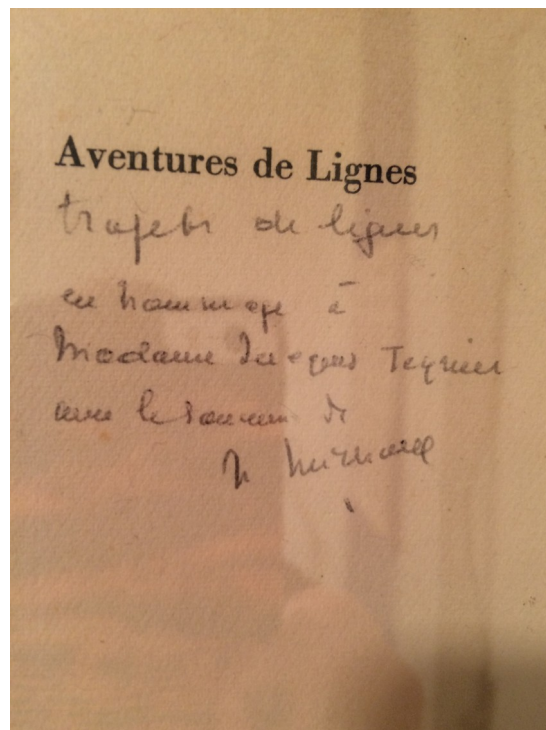 Aventures de Lignes
trajets de lignes
en hommage à
Madame Jacques Teyrier
avec le souvenir de
H Michaux